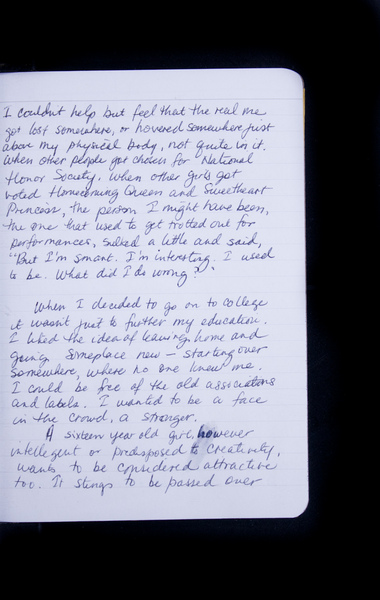 I couldn't help but feel that the real me
got lost somewhere, or hovered somewhere just
above my physical body, not quite in it.
When other people got chosen for National
Honor Society. When other girls got
voted Homecoming Queen and Sweetheart
Princess, the person I might have been,
the one that used to get trotted out for
performances, sulked a little and said,
"But I'm smart. I'm interesting. I used
to be. What did I do wrong?"
When I decided to go on to college
it wasn't just to further my education.
I liked the idea of leaving home and
going someplace new - starting over
somewhere, where no one knew me.
I could be free of the old associations
and labels. I wanted to be a face
in the crowd, a stranger.
A sixteen year old girl, however
intellegent or predisposed to creativity,
wants to be considered attractive
too. It stings to be passed over